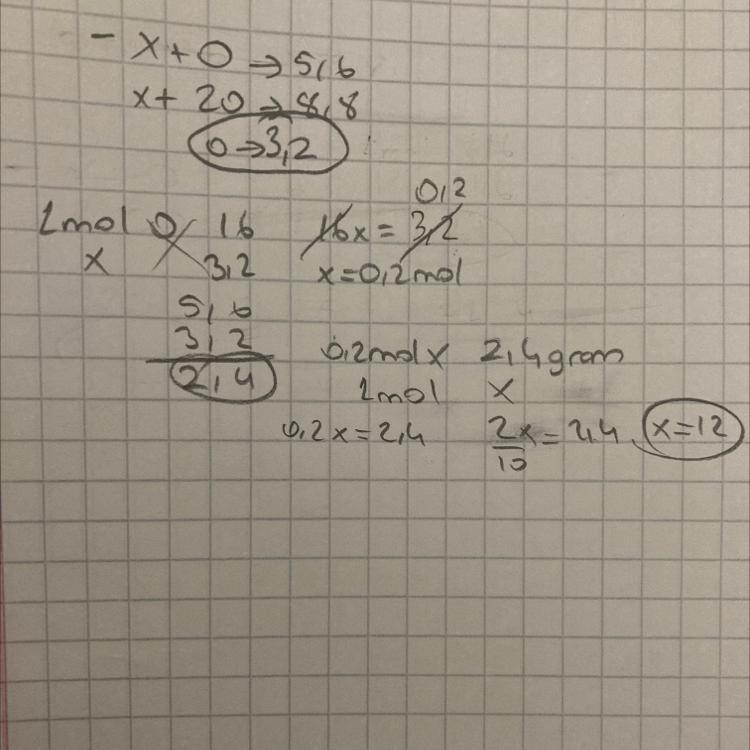 - x + O → 5,6
x + 2O → 8,8
O → 3,2
1mol O 16 16x = 3,2 0,2
x 3,2 x = 0,2mol
5,6
3,2 0,2mol x 2,4gram
2,4 1mol x
0,2x = 2,4 2x/10 = 2,4 x = 12